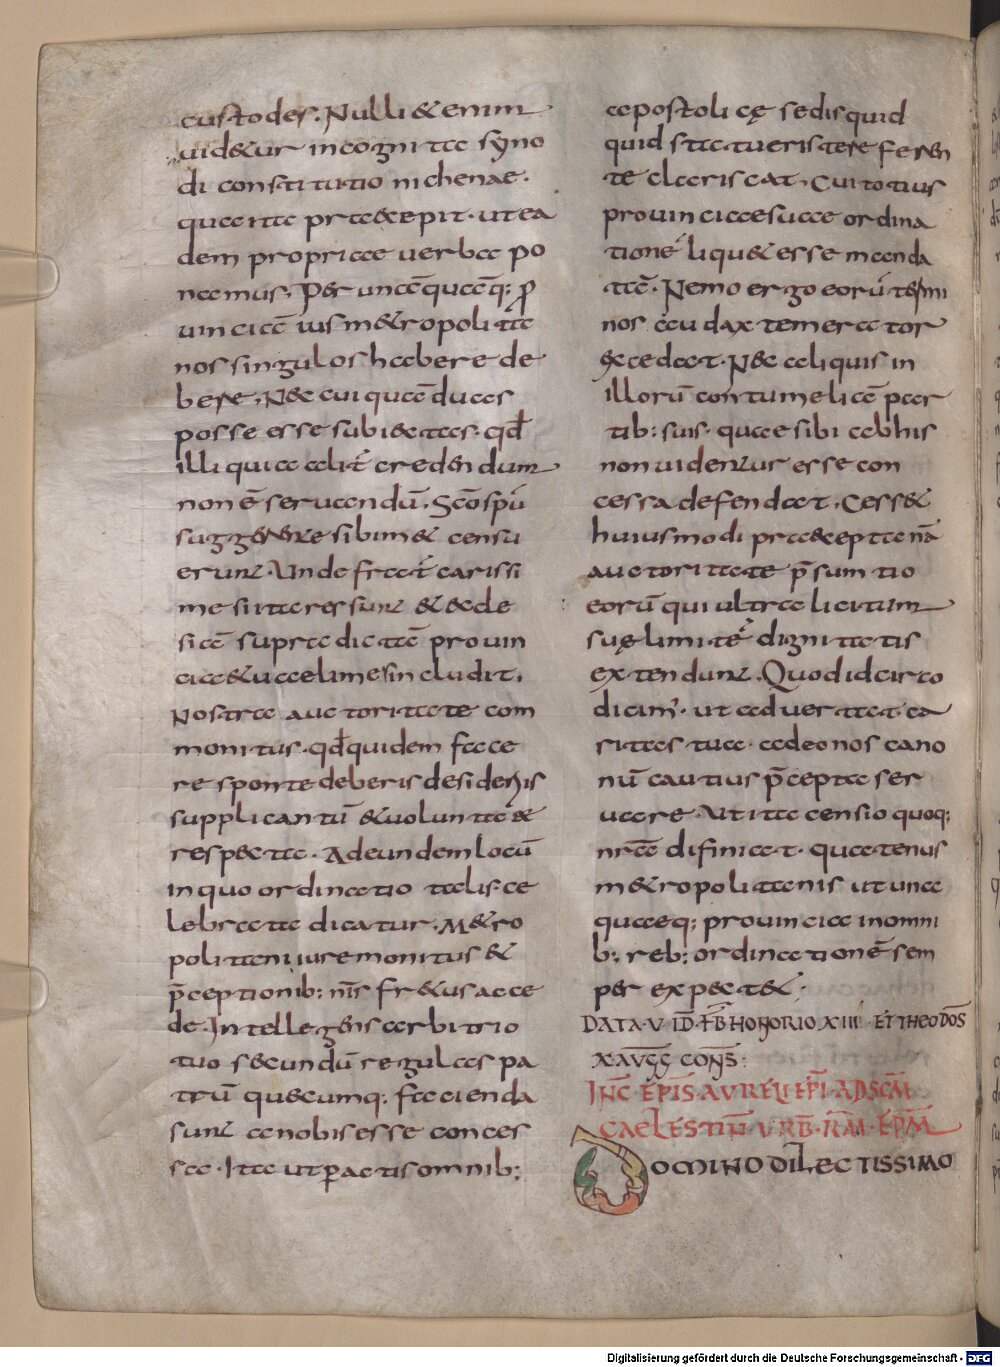 custodes. Nulli & enim
uid&ur incognitae syno
di constitutio nichenae.
quae ita pracepit. ut ea
dem propriae uerba po
namus. Per unāquāq; ꝓ
uinciā ius m&ropolita
nos singulos habere de
bere. Nec cuiquā duas
posse esse subiectas. qđ
illi quia alit̄ credendum
non ē seruandū. Sc̄o sp̄u
suggerente sibim& censu
erunt. Unde frat̄ carissi
me si ita res sunt & ecle
siā supra dictā prouin
ciae & uae limes includit.
Nostra auctoritate com
monitus. qđ quidem face
re sponte deberis desideriis
supplicantū & uoluntate
respecta. Ad eundem locū
in quo ordinatio talis ce
lebrata dicatur. M&ro
politani iure monitus &
p̄ceptionib: nr̄is fr&us acce
de. Intellegens arbitrio
tuo secundū regulas pa
trū quaecumq. facienda
sunt a nobis esse conces
sa. Ita ut peractis omnib:
apostolicę sedis quid
quid statueris te referen
te clariscat. Cui totius
prouinciae suae ordina
tionē liqu& esse manda
tā. Nemo ergo eorū termi
nos audax temerator
excedat. Nec aliquis in
illorū contumeliā par
tib: suis. quae sibi ab his
non uidentur esse con
cessa defendat. Cess&
huiusmodi pracepta nā
auctoritate p̄sumtio
eorū qui ultra licitum
suę limitē dignitatis
extendunt. Quod idcirco
dicim'. ut aduertat ca
ritas tua. adeo nos cano
nū cautius p̄cepta ser
uare. Ut ita censio quoq;
nr̄a difiniat. quatenus
m&ropolitanis ut una
quaeq; prouincia in omni
b: reb: ordinationē sem
per expect&.
DATA V ID FB̄ HONORIO XIII ET THEODOS̄
X AUGG̅ CONS̄:
INC̄ EPĪS AURELI EPĪ AD SCM̄
CAELESTINŪ URB̄ RM̄ EPM̄
DOMINO DILECTISSIMO
Digitalisierung gefördert durch die Deutsche Forschungsgemeinschaft - DFG